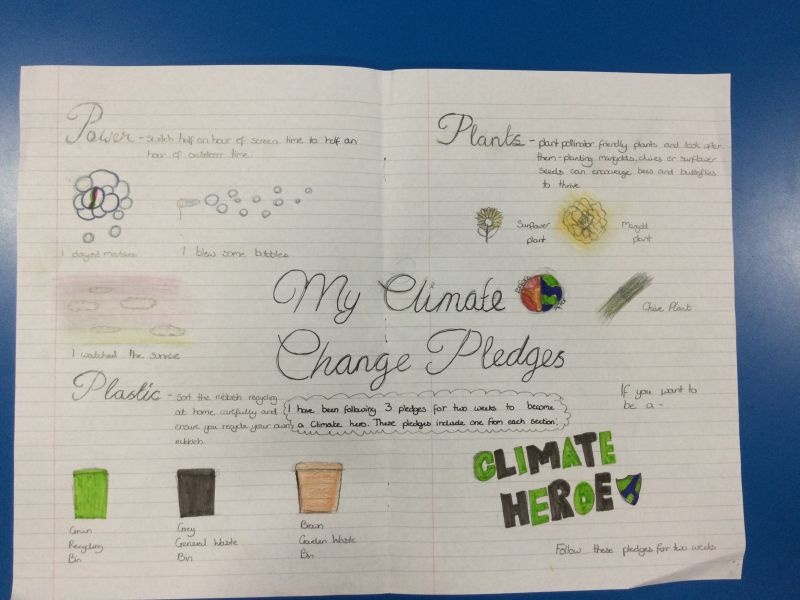 Power - Switch half an hour of screen time to half an
hour of outdoor time.
I played marbles
I blew some bubbles
I watched the sunrise
Plants - plant pollinator friendly plants and look after
them - planting marigolds, chives or sunflower
seeds can encourage bees and butterflies
to thrive
Sunflower
plant
Marigold
plant
Chive Plant
My Climate
Change Pledges
Plastic - Sort the rubbish recycling
at home carefully and
ensure you recycle your own
rubbish.
I have been following 3 pledges for two weeks to become
a Climate hero. These pledges include one from each section.
Green
Recycling
Bin
Grey
General Waste
Bin
Brown
Garden Waste
Bin
If you want to
be a -
CLIMATE
HEROE
Follow these pledges for two weeks